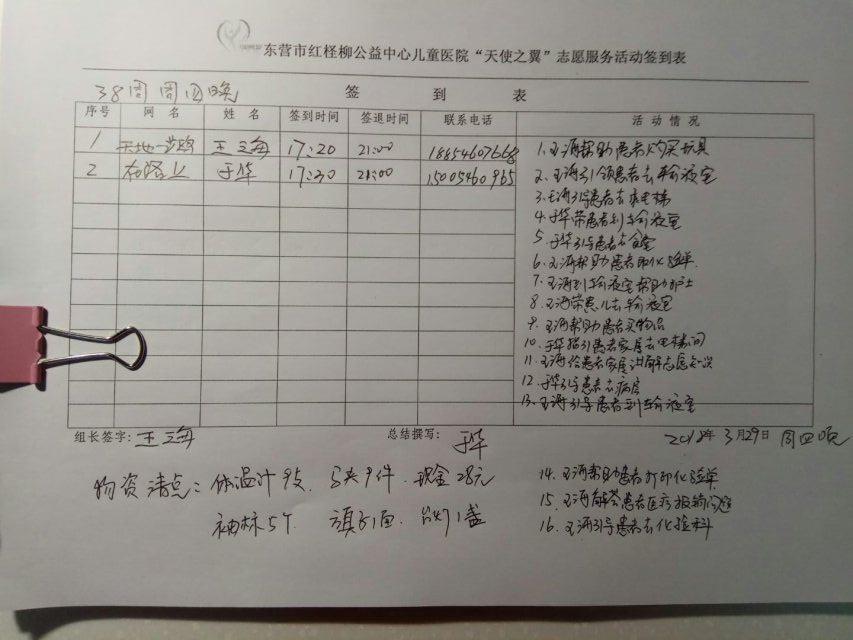 东营市红柽柳公益中心儿童医院“天使之翼”志愿服务活动签到表
38周 周四晚 签 到 表
序号 网 名 姓 名 签到时间 签退时间 联系电话 活 动 情 况
1 天地一 王海 17:20 21:00 18854607668
2 在路上 于华 17:30 21:00 15005460965
1.王海帮助患者购买玩具
2.王海引领患者去输液室
3.王海引导患者去乘电梯
4.于华带患者到输液室
5.于华引导患者去食堂
6.王海帮助患者取化验单.
7.王海到输液室帮助护士
8.王海带患儿去输液室
9.王海帮助患者买物品
10.于华指引患者家属去电梯间
11.王海给患者家属讲解志愿知识
12.于华引导患者去病房
13.王海引导患者到输液室
组长签字: 王海 总结撰写: 于华 2018年3月29日 周四晚
物资清点: 体温计9支. 马夹9件. 现金28元
袖标5个. 旗1面. 台灯1盏
14.王海帮助患者打印化验单
15.王海解答患者医疗报销问题
16.王海引导患者去化验科